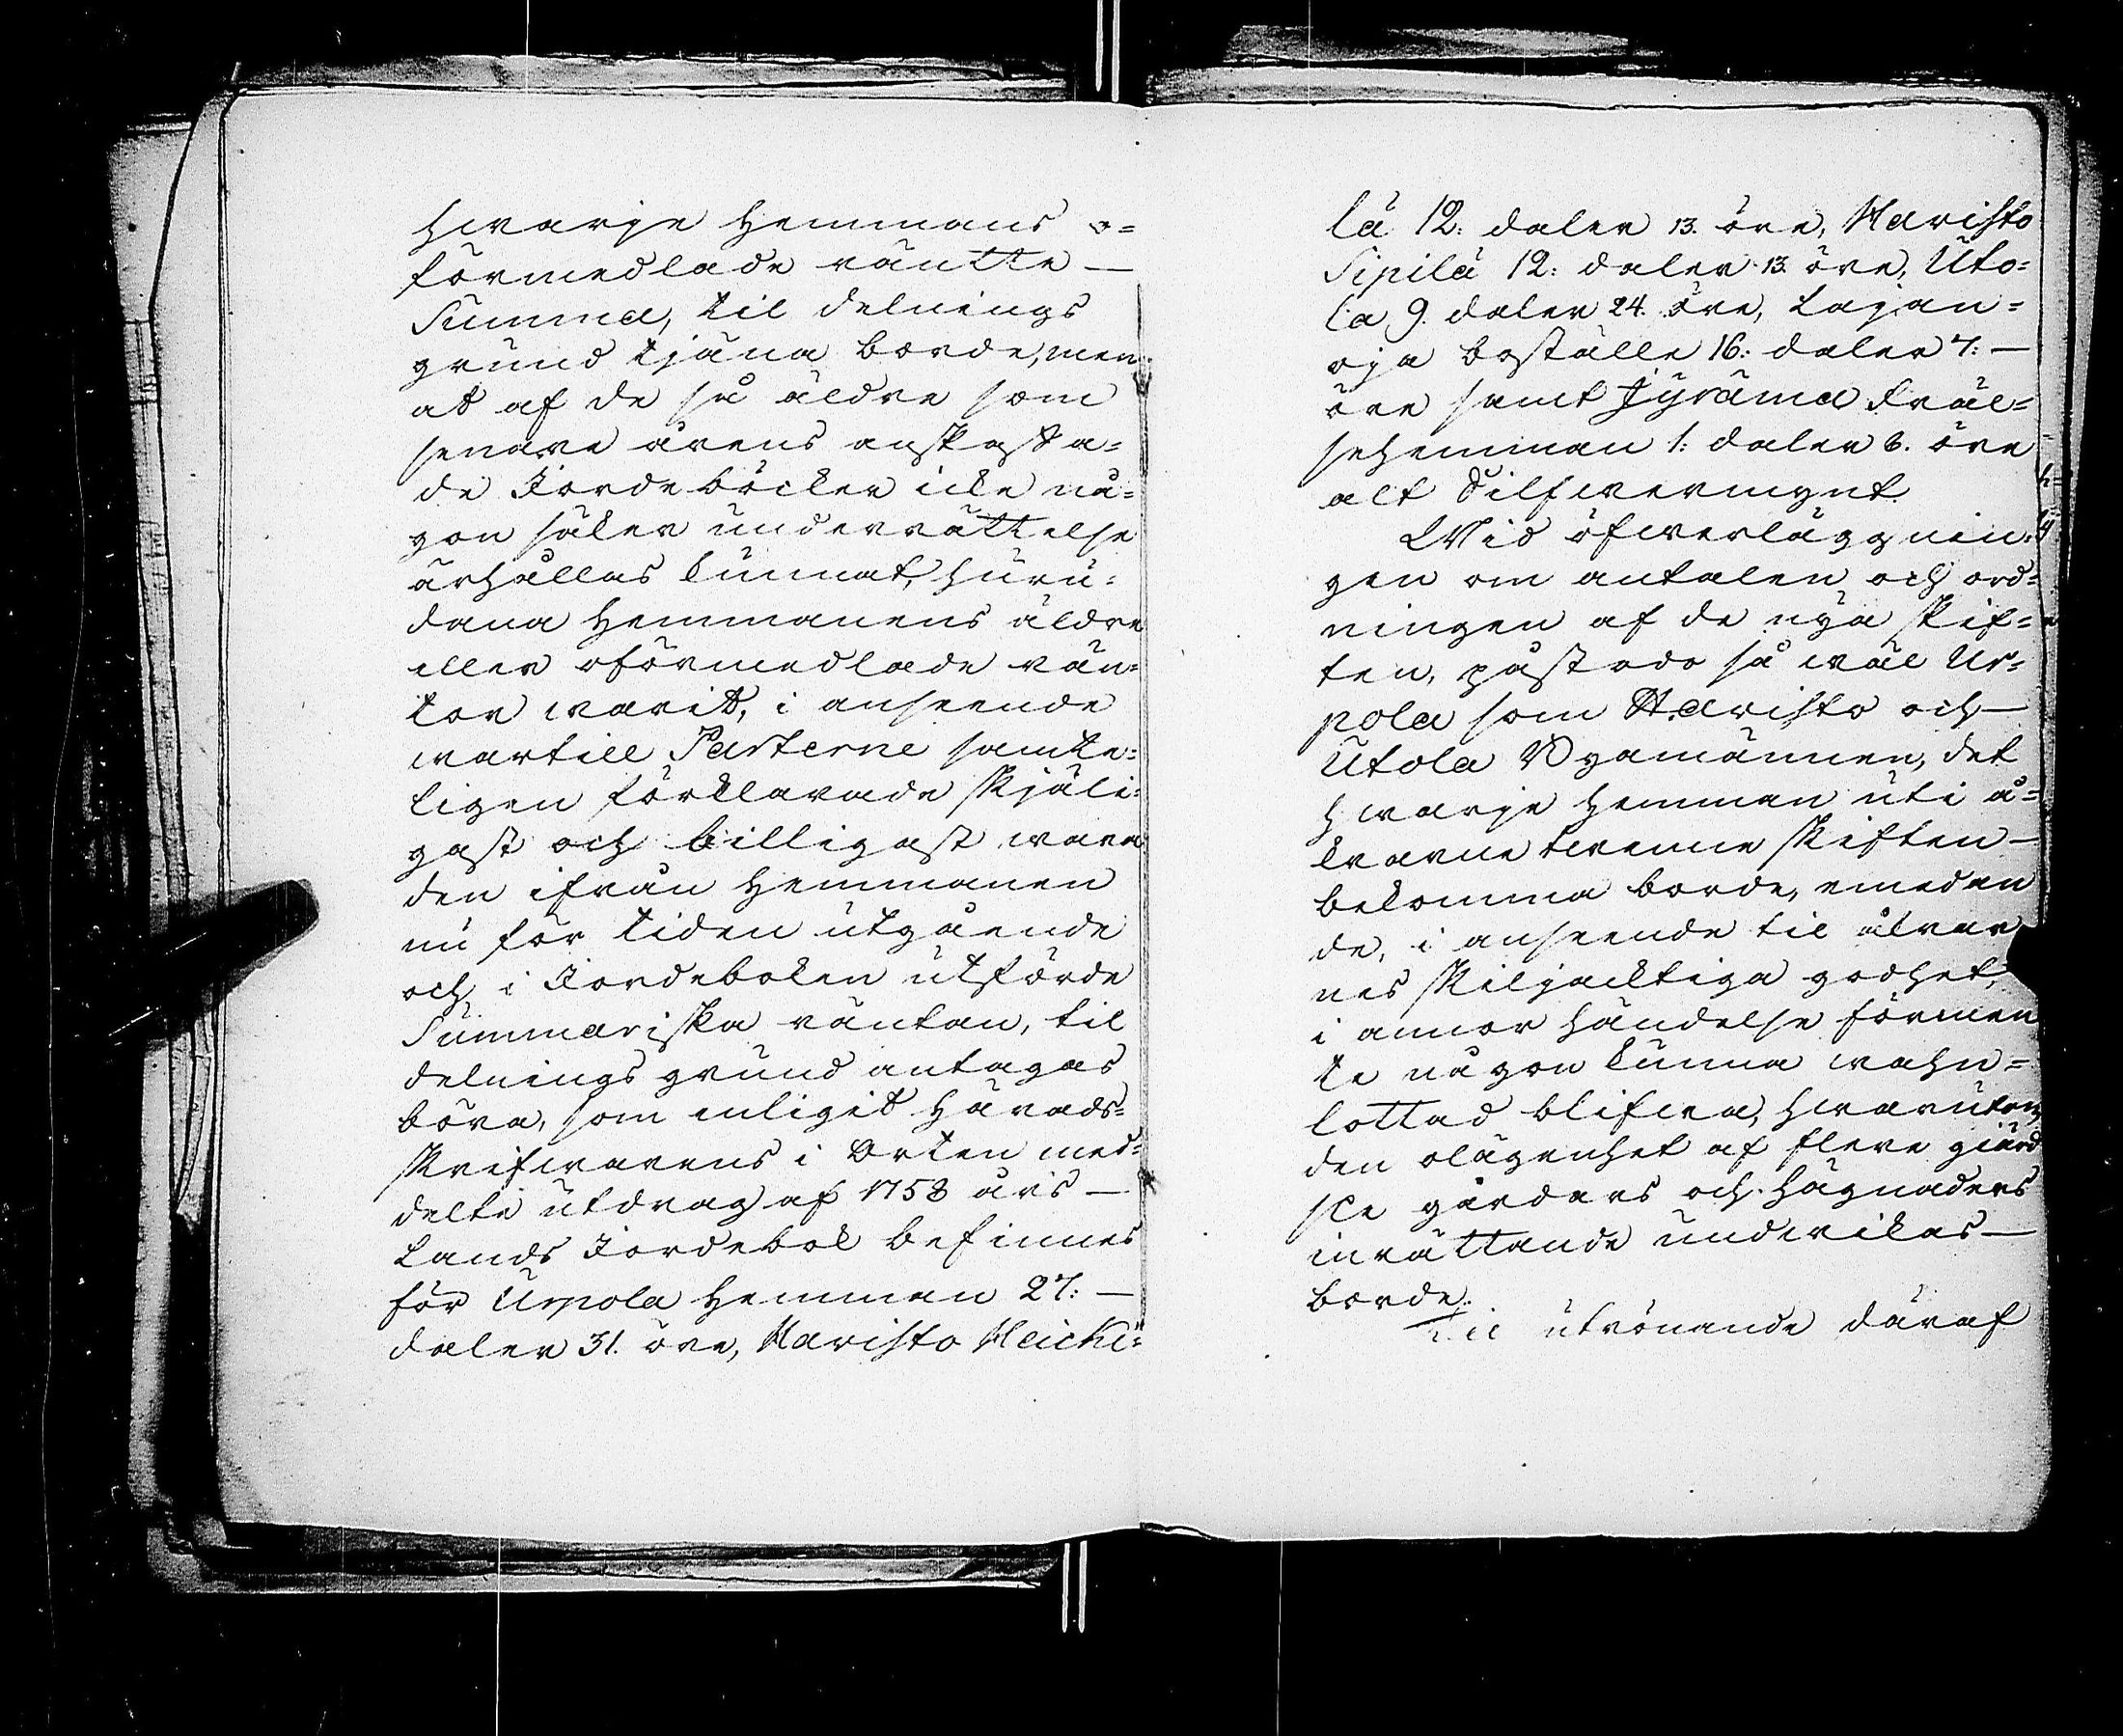 hwarje hemmans o=
förmedlade räntte —
Summa, til delnings
grund tjäna borde, men
at af de så äldre som
senare årens anskaffa=
de Jordeböcker icke nå=
gon säker underrättelse
ärhållas kunnat, huru=
dana hemmanens äldre
eller oförmedlade rän=
tor warit, i anseende
wartill Parterne samte=
ligen förklarade skjäli=
gast och billigast wara
den ifrån hemmanen
nu för tiden utgående
och i Jordeboken utförde
Summariska räntan, til
delnings grund antagas
böra, som enligit härads=
skrifwarens i Orten med=
delte utdrag af 1758 års —
Lands Jordebok befinnes
för Urpola hemman 27: —
daler 31. öre, Haristo Heicki=
lä 12: daler 13. öre, Haristo
Sipilä 12: daler 13 öre, Uto=
la 9. daler 24. öre, Lajan=
oja boställe 16: daler 7: —
öre samt Jyrämä fräl=
sehemman 1: daler 6. öre
alt Silfwermynt.
Wid öfwerläggnin=
gen om antalen och ord=
ningen af de nya skif=
ten, påstodo så wäl Ur=
pola som Haristo och —
Utola Byamännen, det
hwarje hemman uti å=
krarne twenne skiften —
bekomma borde, emedan
de, i anseende til åkrar
nes skiljacktiga godhet,
i annor händelse förmen
te någon kunna wahn=
lottad blifwa, hwarutom
den olägenhet af flere gierd
sle gårdars och hägnaders
inrättande undwikas —
borde.
Til utrönande däraf